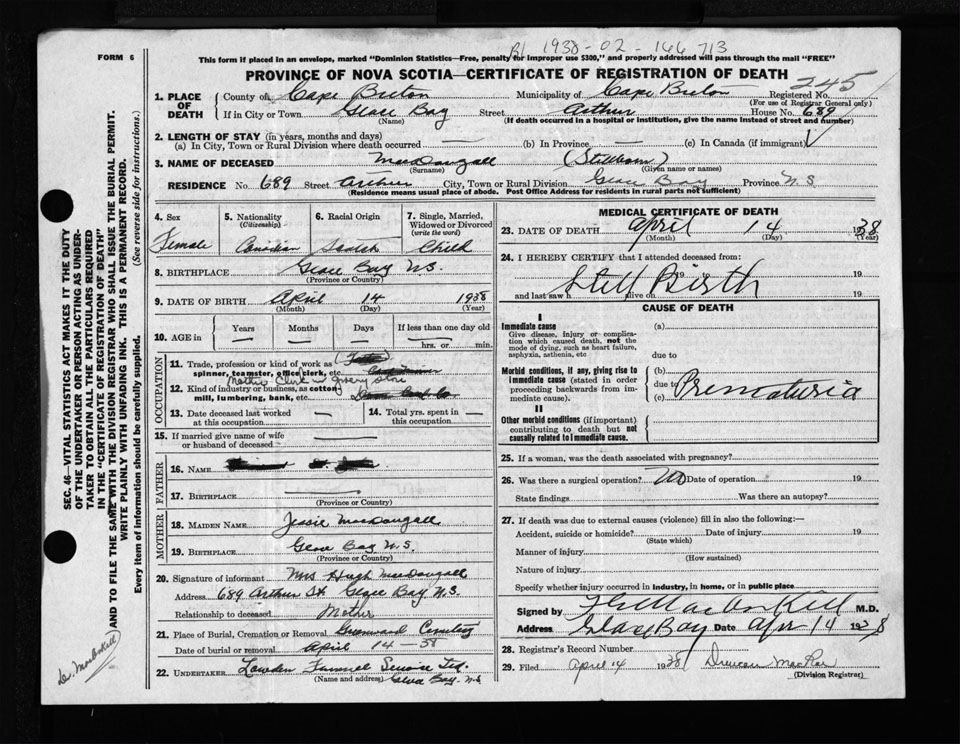 B1 1938-02-166713
FORM 6
This form if placed in an envelope, marked "Dominion Statistics—Free, penalty for improper use $300," and properly addressed will pass through the mail "FREE"
PROVINCE OF NOVA SCOTIA—CERTIFICATE OF REGISTRATION OF DEATH
245
1. PLACE OF DEATH
County of Cape Breton Municipality of Cape Breton Registered No.
(For use of Registrar General only)
If in City or Town Glace Bay Street Arthur House No. 689
(Name) (If death occurred in a hospital or institution, give the name instead of street and number)
2. LENGTH OF STAY (in years, months and days)
(a) In City, Town or Rural Division where death occurred — (b) In Province — (c) In Canada (if immigrant)
3. NAME OF DECEASED MacDougall (Stillborn)
(Surname) (Given name or names)
RESIDENCE No. 689 Street Arthur City, Town or Rural Division Glace Bay Province N.S.
(Residence means usual place of abode. Post Office Address for residents in rural parts not sufficient)
4. Sex Female
5. Nationality (Citizenship) Canadian
6. Racial Origin Scotch
7. Single, Married, Widowed or Divorced (write the word) Child
8. BIRTHPLACE Glace Bay N.S.
(Province or Country)
9. DATE OF BIRTH April 14 1938
(Month) (Day) (Year)
10. AGE in Years Months Days If less than one day old
— — — hrs. or min.
OCCUPATION
11. Trade, profession or kind of work as spinner, teamster, office clerk, etc.
Mother Clerk in grocery store
12. Kind of industry or business, as cotton mill, lumbering, bank, etc.
13. Date deceased last worked at this occupation —
14. Total yrs. spent in this occupation —
15. If married give name of wife or husband of deceased —
FATHER
16. NAME
17. BIRTHPLACE —
(Province or Country)
MOTHER
18. MAIDEN NAME Jessie MacDougall
19. BIRTHPLACE Glace Bay N.S.
(Province or Country)
20. Signature of informant Mrs Hugh MacDougall
Address 689 Arthur St Glace Bay N.S.
Relationship to deceased Mother
21. Place of Burial, Cremation or Removal Greenwood Cemetery
Date of burial or removal April 14-38
22. UNDERTAKER Funeral Service Ltd.
(Name and address) Glace Bay. N.S.
MEDICAL CERTIFICATE OF DEATH
23. DATE OF DEATH April 14 1938
(Month) (Day) (Year)
24. I HEREBY CERTIFY that I attended deceased from:
19 Still Birth 19
and last saw h alive on 19
CAUSE OF DEATH
I
Immediate cause (a)
Give disease, injury or complication which caused death, not the mode of dying, such as heart failure, asphyxia, asthenia, etc
due to
Morbid conditions, if any, giving rise to immediate cause (stated in order proceeding backwards from immediate cause).
(b)
due to
(c) Prematuria
II
Other morbid conditions (if important) contributing to death but not causally related to immediate cause.
25. If a woman, was the death associated with pregnancy?
26. Was there a surgical operation? No Date of operation 19
State findings Was there an autopsy?
27. If death was due to external causes (violence) fill in also the following:—
Accident, suicide or homicide? Date of injury 19
(State which)
Manner of injury
(How sustained)
Nature of injury
Specify whether injury occurred in industry, in home, or in public place
Signed by M.D.
Address Glace Bay Date Apr 14 1938
28. Registrar's Record Number
29. Filed April 14 1938 Duncan MacRae
(Division Registrar)
SEC. 46—VITAL STATISTICS ACT MAKES IT THE DUTY
OF THE UNDERTAKER OR PERSON ACTING AS UNDER-
TAKER TO OBTAIN ALL THE PARTICULARS REQUIRED
IN THE "CERTIFICATE OF REGISTRATION OF DEATH"
AND TO FILE THE SAME WITH THE DIVISION REGISTRAR WHO SHALL ISSUE THE BURIAL PERMIT.
WRITE PLAINLY WITH UNFADING INK. THIS IS A PERMANENT RECORD.
Every item of information should be carefully supplied. (See reverse side for instructions.)